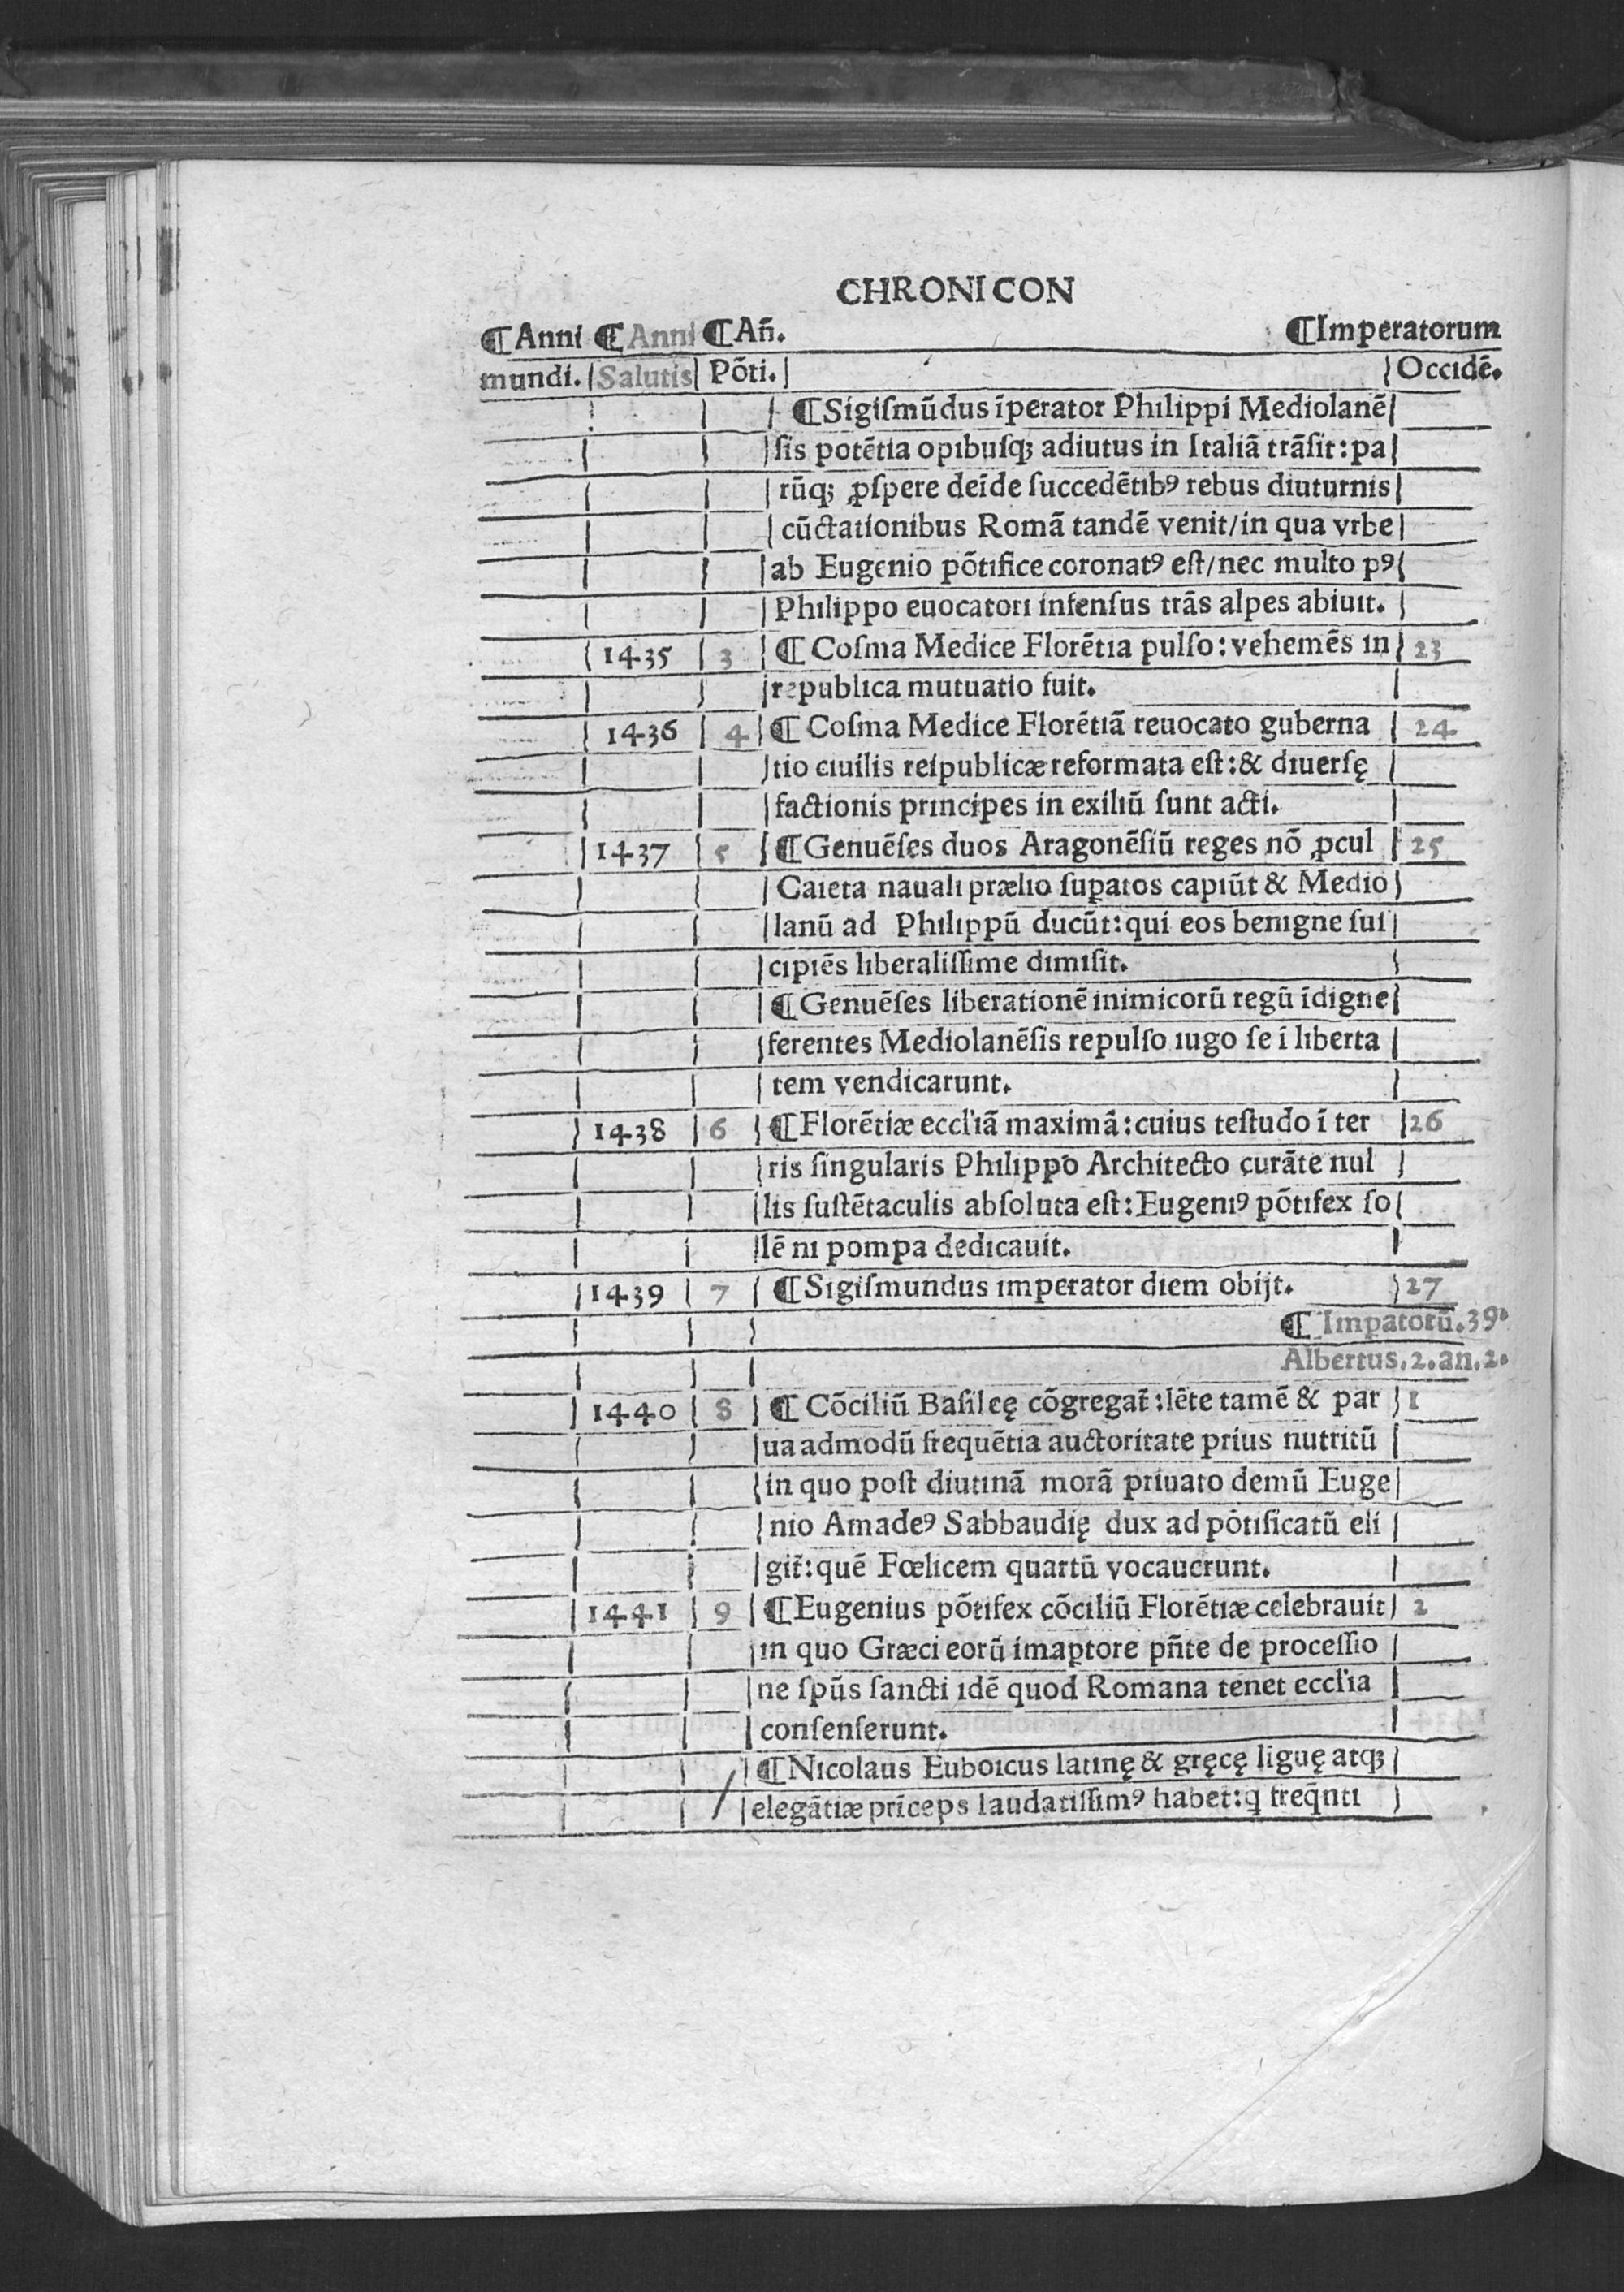 CHRONICON
¶Anni ¶Anni ¶An̄. ¶Imperatorum
mundi. Salutis Põti. Occidẽ.
¶Sigiſmũdus ĩperator Philippi Mediolanẽ
ſis potẽtia opibuſq; adiutus in Italiã trãſit:pa
rũq; ꝓſpere deĩde ſuccedẽtibꝰ rebus diuturnis
cũctationibus Romã tandẽ venit/in qua vrbe
ab Eugenio põtifice coronatꝰ eſt/nec multo pꝰ
Philippo euocatori infenſus trãs alpes abiuit.
1435 3 ¶ Coſma Medice Florẽtia pulſo:vehemẽs in 23
republica mutuatio fuit.
1436 4 ¶ Coſma Medice Florẽtiã reuocato guberna 24
tio ciuilis reipublicæ reformata eſt:& diuerſę
factionis principes in exiliũ ſunt acti.
1437 5 ¶Genuẽſes duos Aragonẽſiũ reges nõ ꝓcul 25
Caieta nauali prælio ſuꝑatos capiũt & Medio
lanũ ad Philippũ ducũt:qui eos benigne ſuſ
cipiẽs liberaliſſime dimiſit.
¶Genuẽſes liberationẽ inimicorũ regũ ĩdigne
ferentes Mediolanẽſis repulſo iugo ſe ĩ liberta
tem vendicarunt.
1438 6 ¶Florẽtiæ eccl'iã maximã:cuius teſtudo ĩ ter 26
ris ſingularis Philippo Architecto curãte nul
lis ſuſtẽtaculis abſoluta eſt:Eugeniꝰ põtifex ſo
lẽ ni pompa dedicauit.
1439 7 ¶Sigiſmundus imperator diem obijt. 27
¶ Imꝑatorũ.39.
Albertus.2.an.2.
1440 8 ¶ Cõciliũ Baſileę cõgregat̃:lẽte tamẽ & par 1
ua admodũ frequẽtia auctoritate prius nutritũ
in quo poſt diutinã morã priuato demũ Euge
nio Amadeꝰ Sabbaudię dux ad põtificatũ eli
git̃:quẽ Fœlicem quartũ vocauerunt.
1441 9 ¶Eugenius põtifex cõciliũ Florẽtiæ celebrauit 2
in quo Græci eorũ imaꝑtore pñte de proceſſio
ne ſpũs ſancti idẽ quod Romana tenet eccl'ia
conſenſerunt.
¶Nicolaus Euboicus latinę & gręcę liguę atq;
elegãtiæ prĩceps laudatiſſimꝰ habet:q freq̃nti